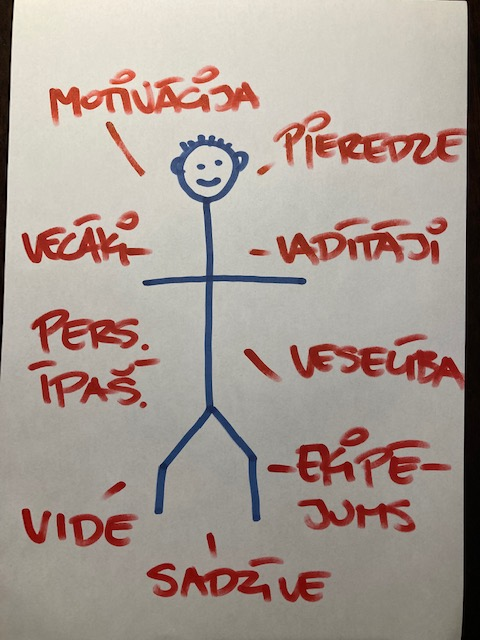 MOTIVĀCIJA
PIEREDZE
VECĀKI
VADĪTĀJI
PERS.
ĪPAŠ.
VESELĪBA
EKIPĒ-
JUMS
VIDE
SADZĪVE